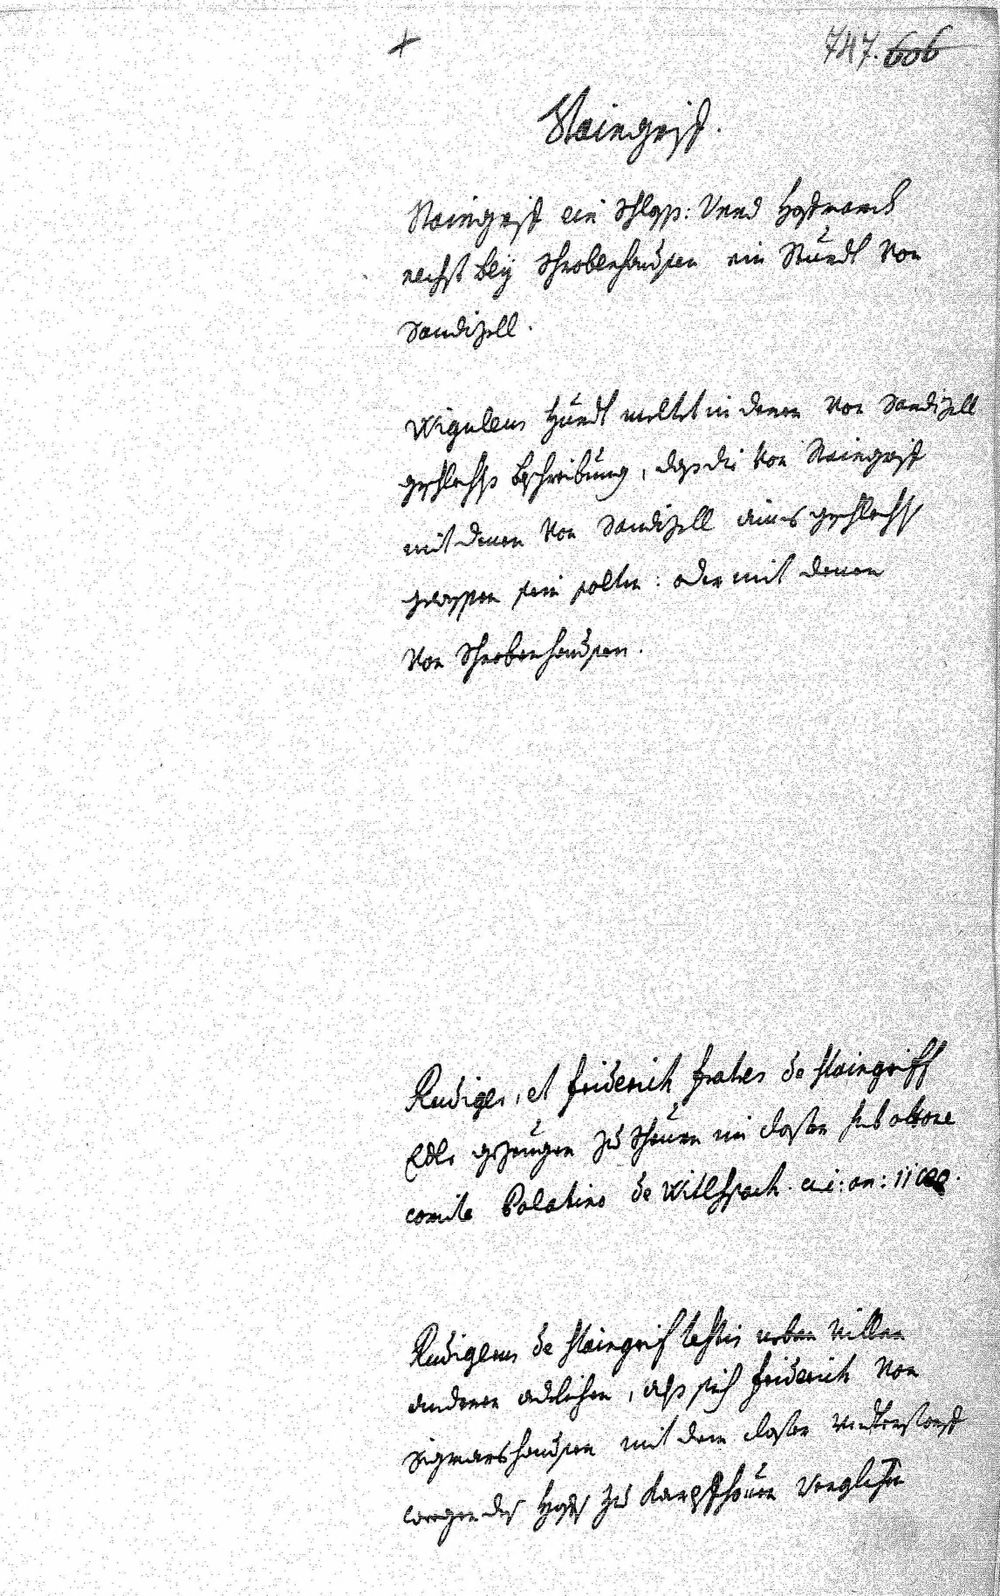 747. 606
Staingriff.
Staingriff ein Schloss: Vnnd Hofmarch
nechst beÿ Schrobenhausen ein Stundt Von
Sandizell.
Wiguleus Hundt meltet in denen Von Sandizell
geschlechts bschreibung, das die Von Staingriff
mit denen Von Sandizell aines geschlechts
gewessen sein solten: oder mit denen
Von Schrobenhausen.
Rudiger, et friderich fratres de staingriff
Edle gezeugen zu Scheurn im closter sub ottone
comite Palatino de Wittlspach. an:
Rudigerus de staingrif testis neben Villen
anderen adelichen, als sich friderich Von
Sigmarshausen mit dem closter Vndterstorff
wegen des Hoffs zu Karpfhouen Verglichen